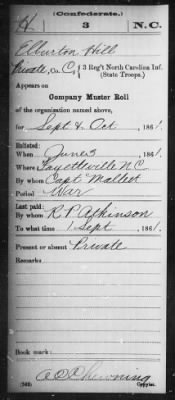 (Confederate.)
H 3 N.C.
Elburton Hill
Private, Co. C, 3 Reg't North Carolina Inf.
(State Troops.)
Appears on
Company Muster Roll
of the organization named above,
for Sept & Oct, 1861.
Enlisted:
When June 3, 186 .
Where Fayetteville N.C.
By whom Capt Mallett
Period War
Last paid:
By whom R P Atkinson
To what time 1 Sept, 1861.
Present or absent Private
Remarks:
Book mark:
Chewning
Copyist.